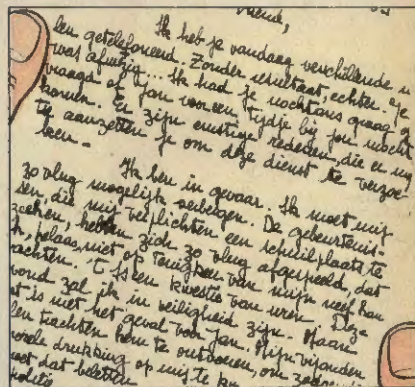 Vriend,
Ik heb je vandaag verschillende
len getelefoneerd. Zonder resultaat, echter. Je
was afwezig... Ik had je nochtans graag ge
vraagd of Jan voor een tijdje bij jou mocht
komen. Er zijn ernstige redenen, die er mij
te aanzetten je om deze dienst te verzoe-
ken.-
Ik ben in gevaar. Ik moet mij
zo vlug mogelijk verbergen. De gebeurtenis-
sen, die mij verplichten een schuilplaats te
zoeken, hebben zich zo vlug afgespeeld, dat
k, helaas, niet op van mijn neef kan
achten. 't Is een kwestie van uren. Deze
vond zal ik in veiligheid zijn. Maar
t is niet het geval voor Jan. Mijn vijanden
len trachten hem te ontvoeren, om zo
drukking op mij te
met dat beletten
politie